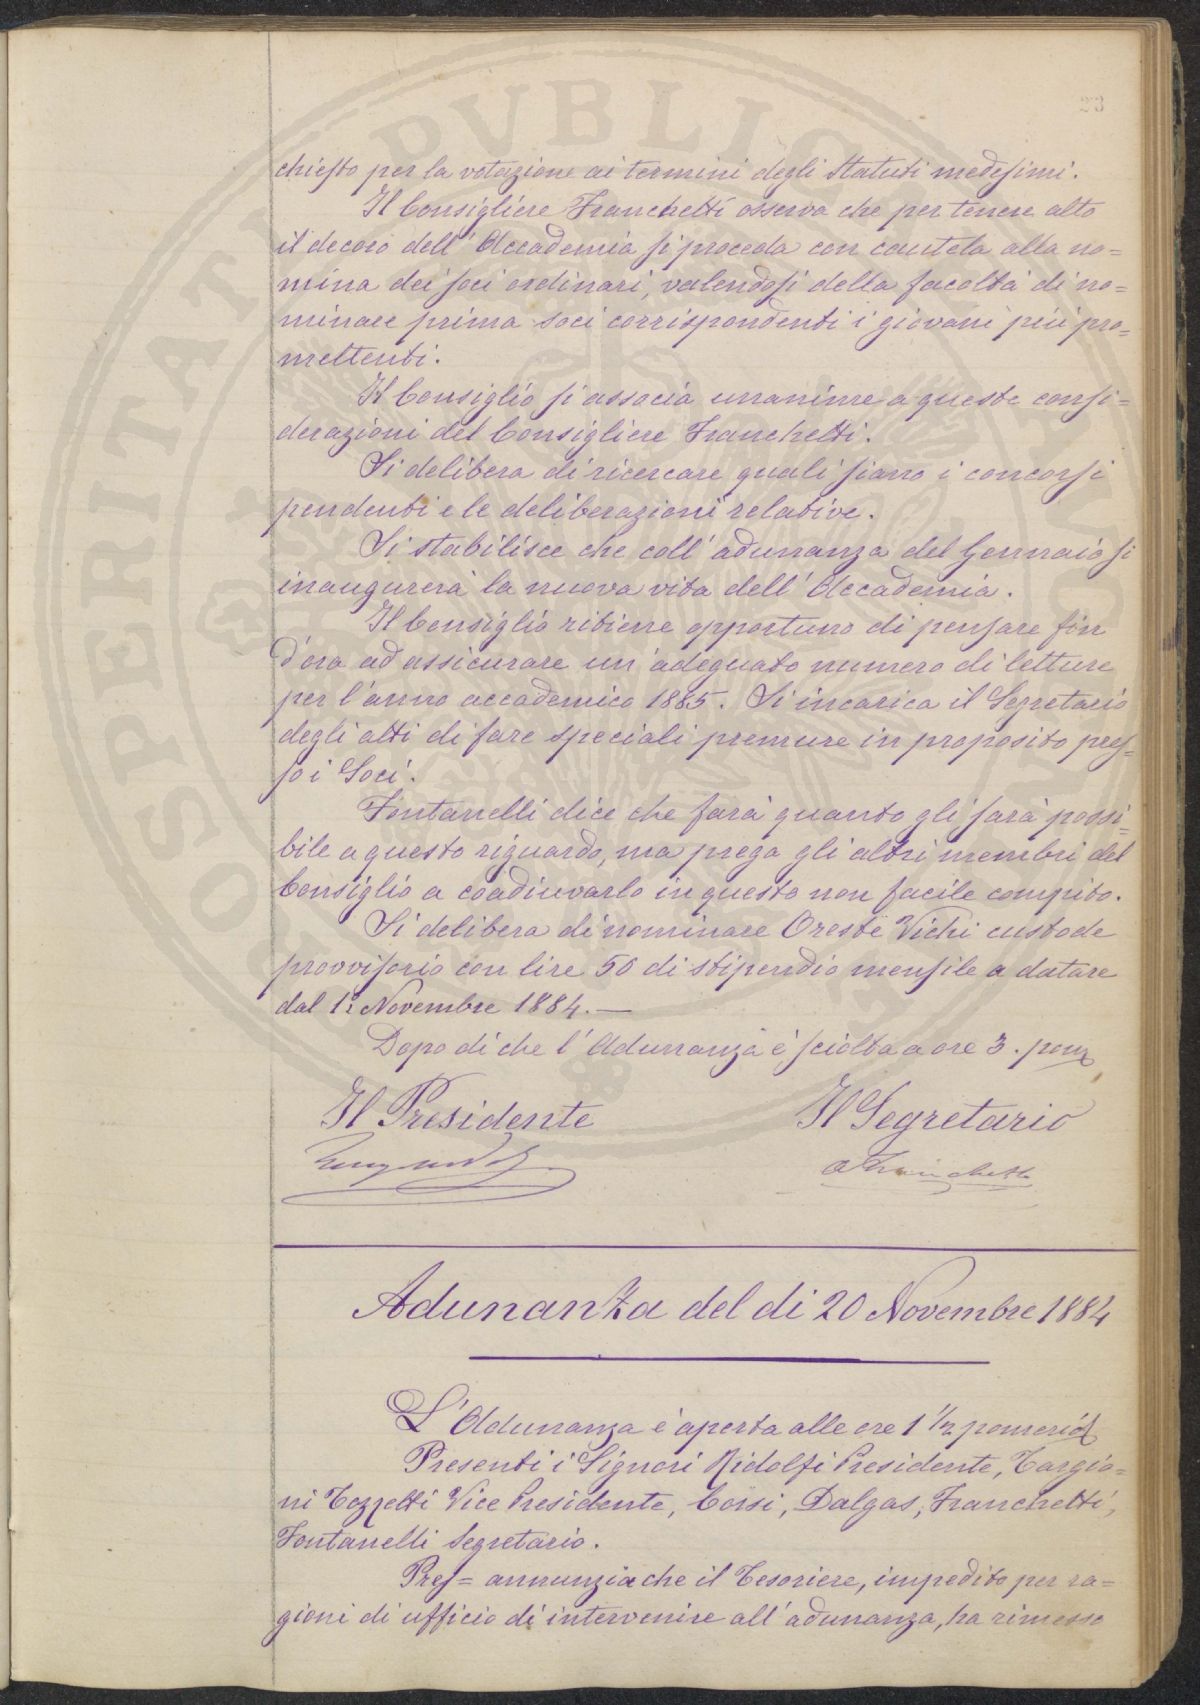 PROSPERITATI PVBLICAE
23
chiesto per la votazione ai termini degli Statuti medesimi.
Il Consigliere Franchetti osserva che per tenere alto
il decoro dell'Accademia si proceda con cautela alla no=
mina dei soci ordinari, valendosi della facoltà di no=
minare prima soci corrispondenti i giovani più pro=
mettenti.
Il Consiglio si associa unanime a queste consi=
derazioni del Consigliere Franchetti.
Si delibera di ricercare quali siano i concorsi
pendenti e le deliberazioni relative.
Si stabilisce che coll'adunanza del Gennaio si
inaugurerà la nuova vita dell'Accademia.
Il Consiglio ritiene opportuno di pensare fin
d'ora ad assicurare un adeguato numero di letture
per l'anno accademico 1885. Si incarica il Segretario
degli atti di fare speciali premure in proposito pres=
so i Soci.
Fontanelli dice che farà quanto gli sarà possi=
bile a questo riguardo, ma prega gli altri membri del
Consiglio a coadiuvarlo in questo non facile compito.
Si delibera di nominare Oreste Vichi custode
provvisorio con lire 50 di stipendio mensile a datare
dal 1º Novembre 1884.—
Dopo di che l'Adunanza è sciolta a ore 3. pom
Il Presidente Il Segretario
AFranchetti
Adunanza del dì 20 Novembre 1884
L'Adunanza è aperta alle ore 1 1/2 pomerid
Presenti i Signori Ridolfi Presidente, Targio=
ni Tozzetti Vice Presidente, Corsi, Dalgas, Franchetti,
Fontanelli Segretario.
Pres= annunzia che il Tesoriere, impedito per ra=
gioni di ufficio di intervenire all'adunanza, ha rimesso